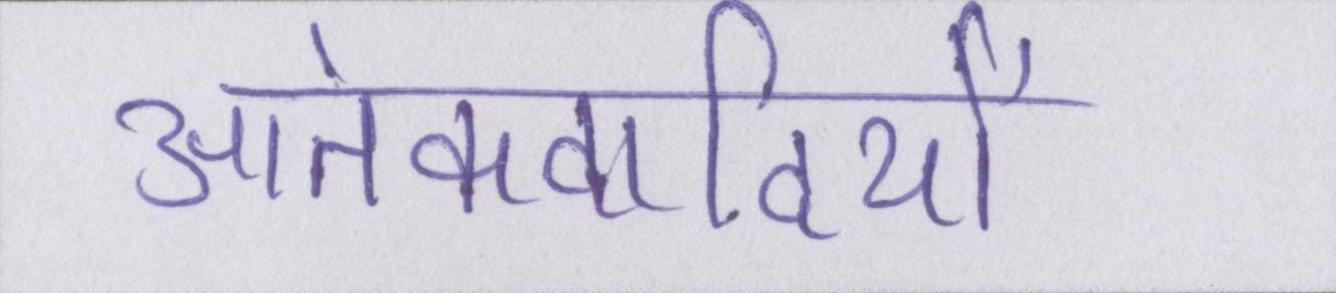 आतंकवादियों